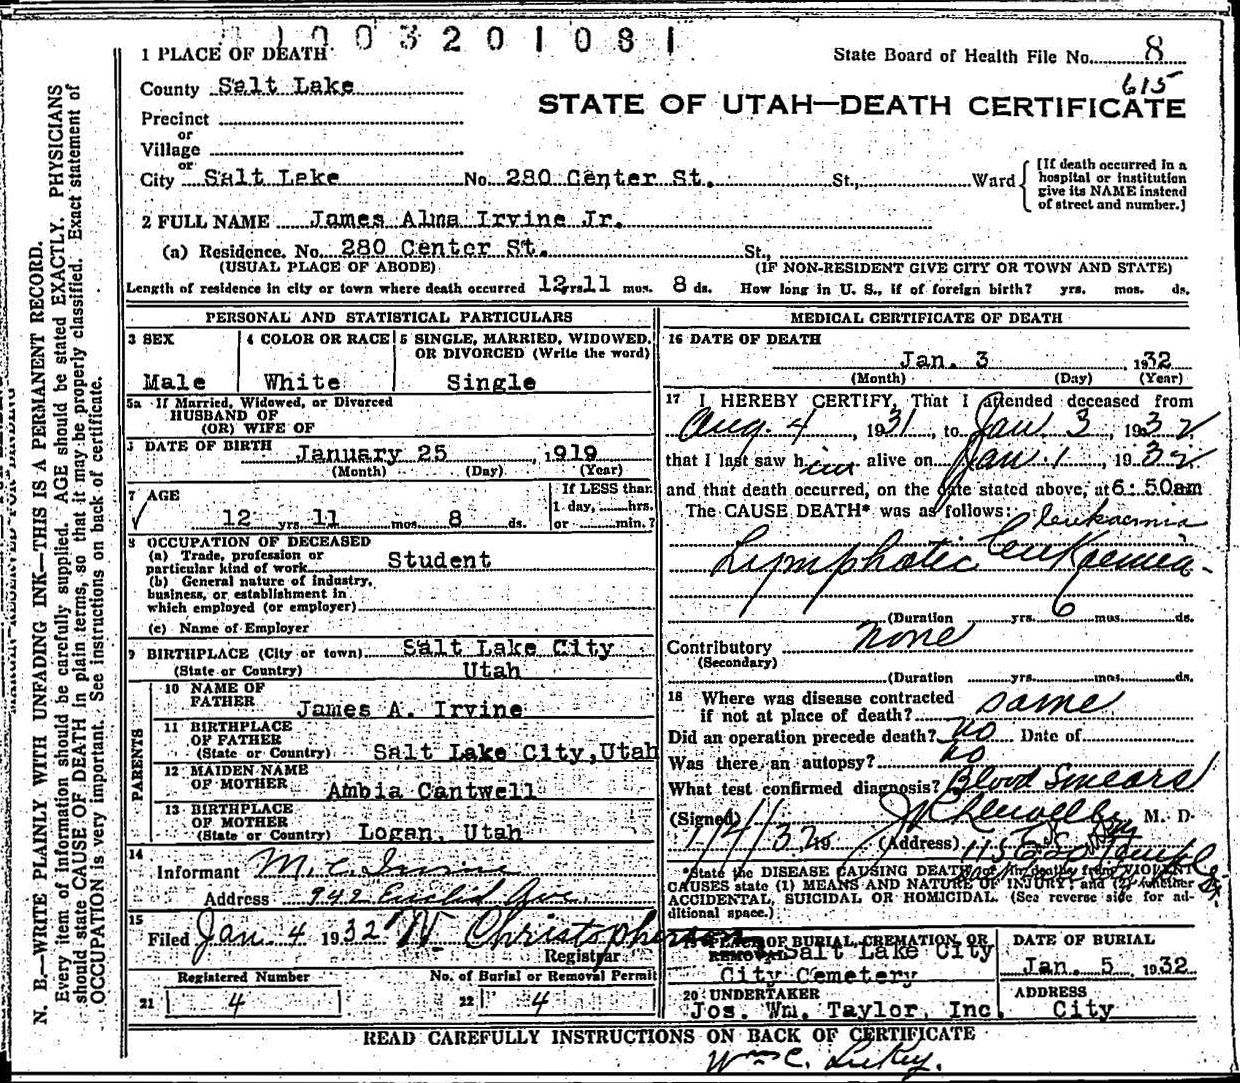 1003201081
1 PLACE OF DEATH
State Board of Health File No. 8
615
County Salt Lake
STATE OF UTAH—DEATH CERTIFICATE
Precinct
or
Village
or
City Salt Lake No. 280 Center St. St., Ward
[If death occurred in a
hospital or institution
give its NAME instead
of street and number.]
2 FULL NAME James Alma Irvine Jr.
(a) Residence. No. 280 Center St. St.,
(USUAL PLACE OF ABODE) (IF NON-RESIDENT GIVE CITY OR TOWN AND STATE)
Length of residence in city or town where death occurred 12 yrs. 11 mos. 8 ds. How long in U. S., if of foreign birth? yrs. mos. ds.
PERSONAL AND STATISTICAL PARTICULARS
3 SEX
Male
4 COLOR OR RACE
White
5 SINGLE, MARRIED, WIDOWED,
OR DIVORCED (Write the word)
Single
5a If Married, Widowed, or Divorced
HUSBAND OF
(OR) WIFE OF
DATE OF BIRTH January 25, 1919
(Month) (Day) (Year)
7 AGE
12 yrs. 11 mos. 8 ds.
If LESS than
1 day, hrs.
or min.?
8 OCCUPATION OF DECEASED
(a) Trade, profession or
particular kind of work Student
(b) General nature of industry,
business, or establishment in
which employed (or employer)
(c) Name of Employer
9 BIRTHPLACE (City or town) Salt Lake City
(State or Country) Utah
PARENTS
10 NAME OF
FATHER James A. Irvine
11 BIRTHPLACE
OF FATHER
(State or Country) Salt Lake City, Utah
12 MAIDEN NAME
OF MOTHER Ambia Cantwell
13 BIRTHPLACE
OF MOTHER
(State or Country) Logan, Utah
14
Informant M. C. Irvine
Address 942 Euclid Ave.
15
Filed Jan. 4 1932 N. Christopherson
Registrar
Registered Number No. of Burial or Removal Permit
21 4 22 4
MEDICAL CERTIFICATE OF DEATH
16 DATE OF DEATH
Jan. 3 1932
(Month) (Day) (Year)
17 I HEREBY CERTIFY, That I attended deceased from
Aug. 4, 1931, to Jan. 3, 1932
that I last saw him alive on Jan. 1, 1932
and that death occurred, on the date stated above, at 6:50am
The CAUSE DEATH* was as follows:
leukaemia
Lymphatic Leukaemia
(Duration yrs. 6 mos. ds.
Contributory none
(Secondary)
(Duration yrs. mos. ds.
18 Where was disease contracted
if not at place of death? same
Did an operation precede death? no Date of
Was there an autopsy? no
What test confirmed diagnosis? Blood Smears
(Signed) M. D.
1/4/32 19 (Address) 115
*State the DISEASE CAUSING DEATH, or in deaths from VIOLENT
CAUSES state (1) MEANS AND NATURE OF INJURY; and (2) whether
ACCIDENTAL, SUICIDAL OR HOMICIDAL. (See reverse side for ad-
ditional space.)
19 PLACE OF BURIAL, CREMATION, OR
REMOVAL Salt Lake City
City Cemetery
DATE OF BURIAL
Jan. 5 1932
20 UNDERTAKER
Jos. Wm. Taylor, Inc.
ADDRESS
City
READ CAREFULLY INSTRUCTIONS ON BACK OF CERTIFICATE
Wm C.
N. B.—WRITE PLAINLY WITH UNFADING INK—THIS IS A PERMANENT RECORD.
Every item of information should be carefully supplied. AGE should be stated EXACTLY. PHYSICIANS
should state CAUSE OF DEATH in plain terms, so that it may be properly classified. Exact statement of
OCCUPATION is very important. See instructions on back of certificate.